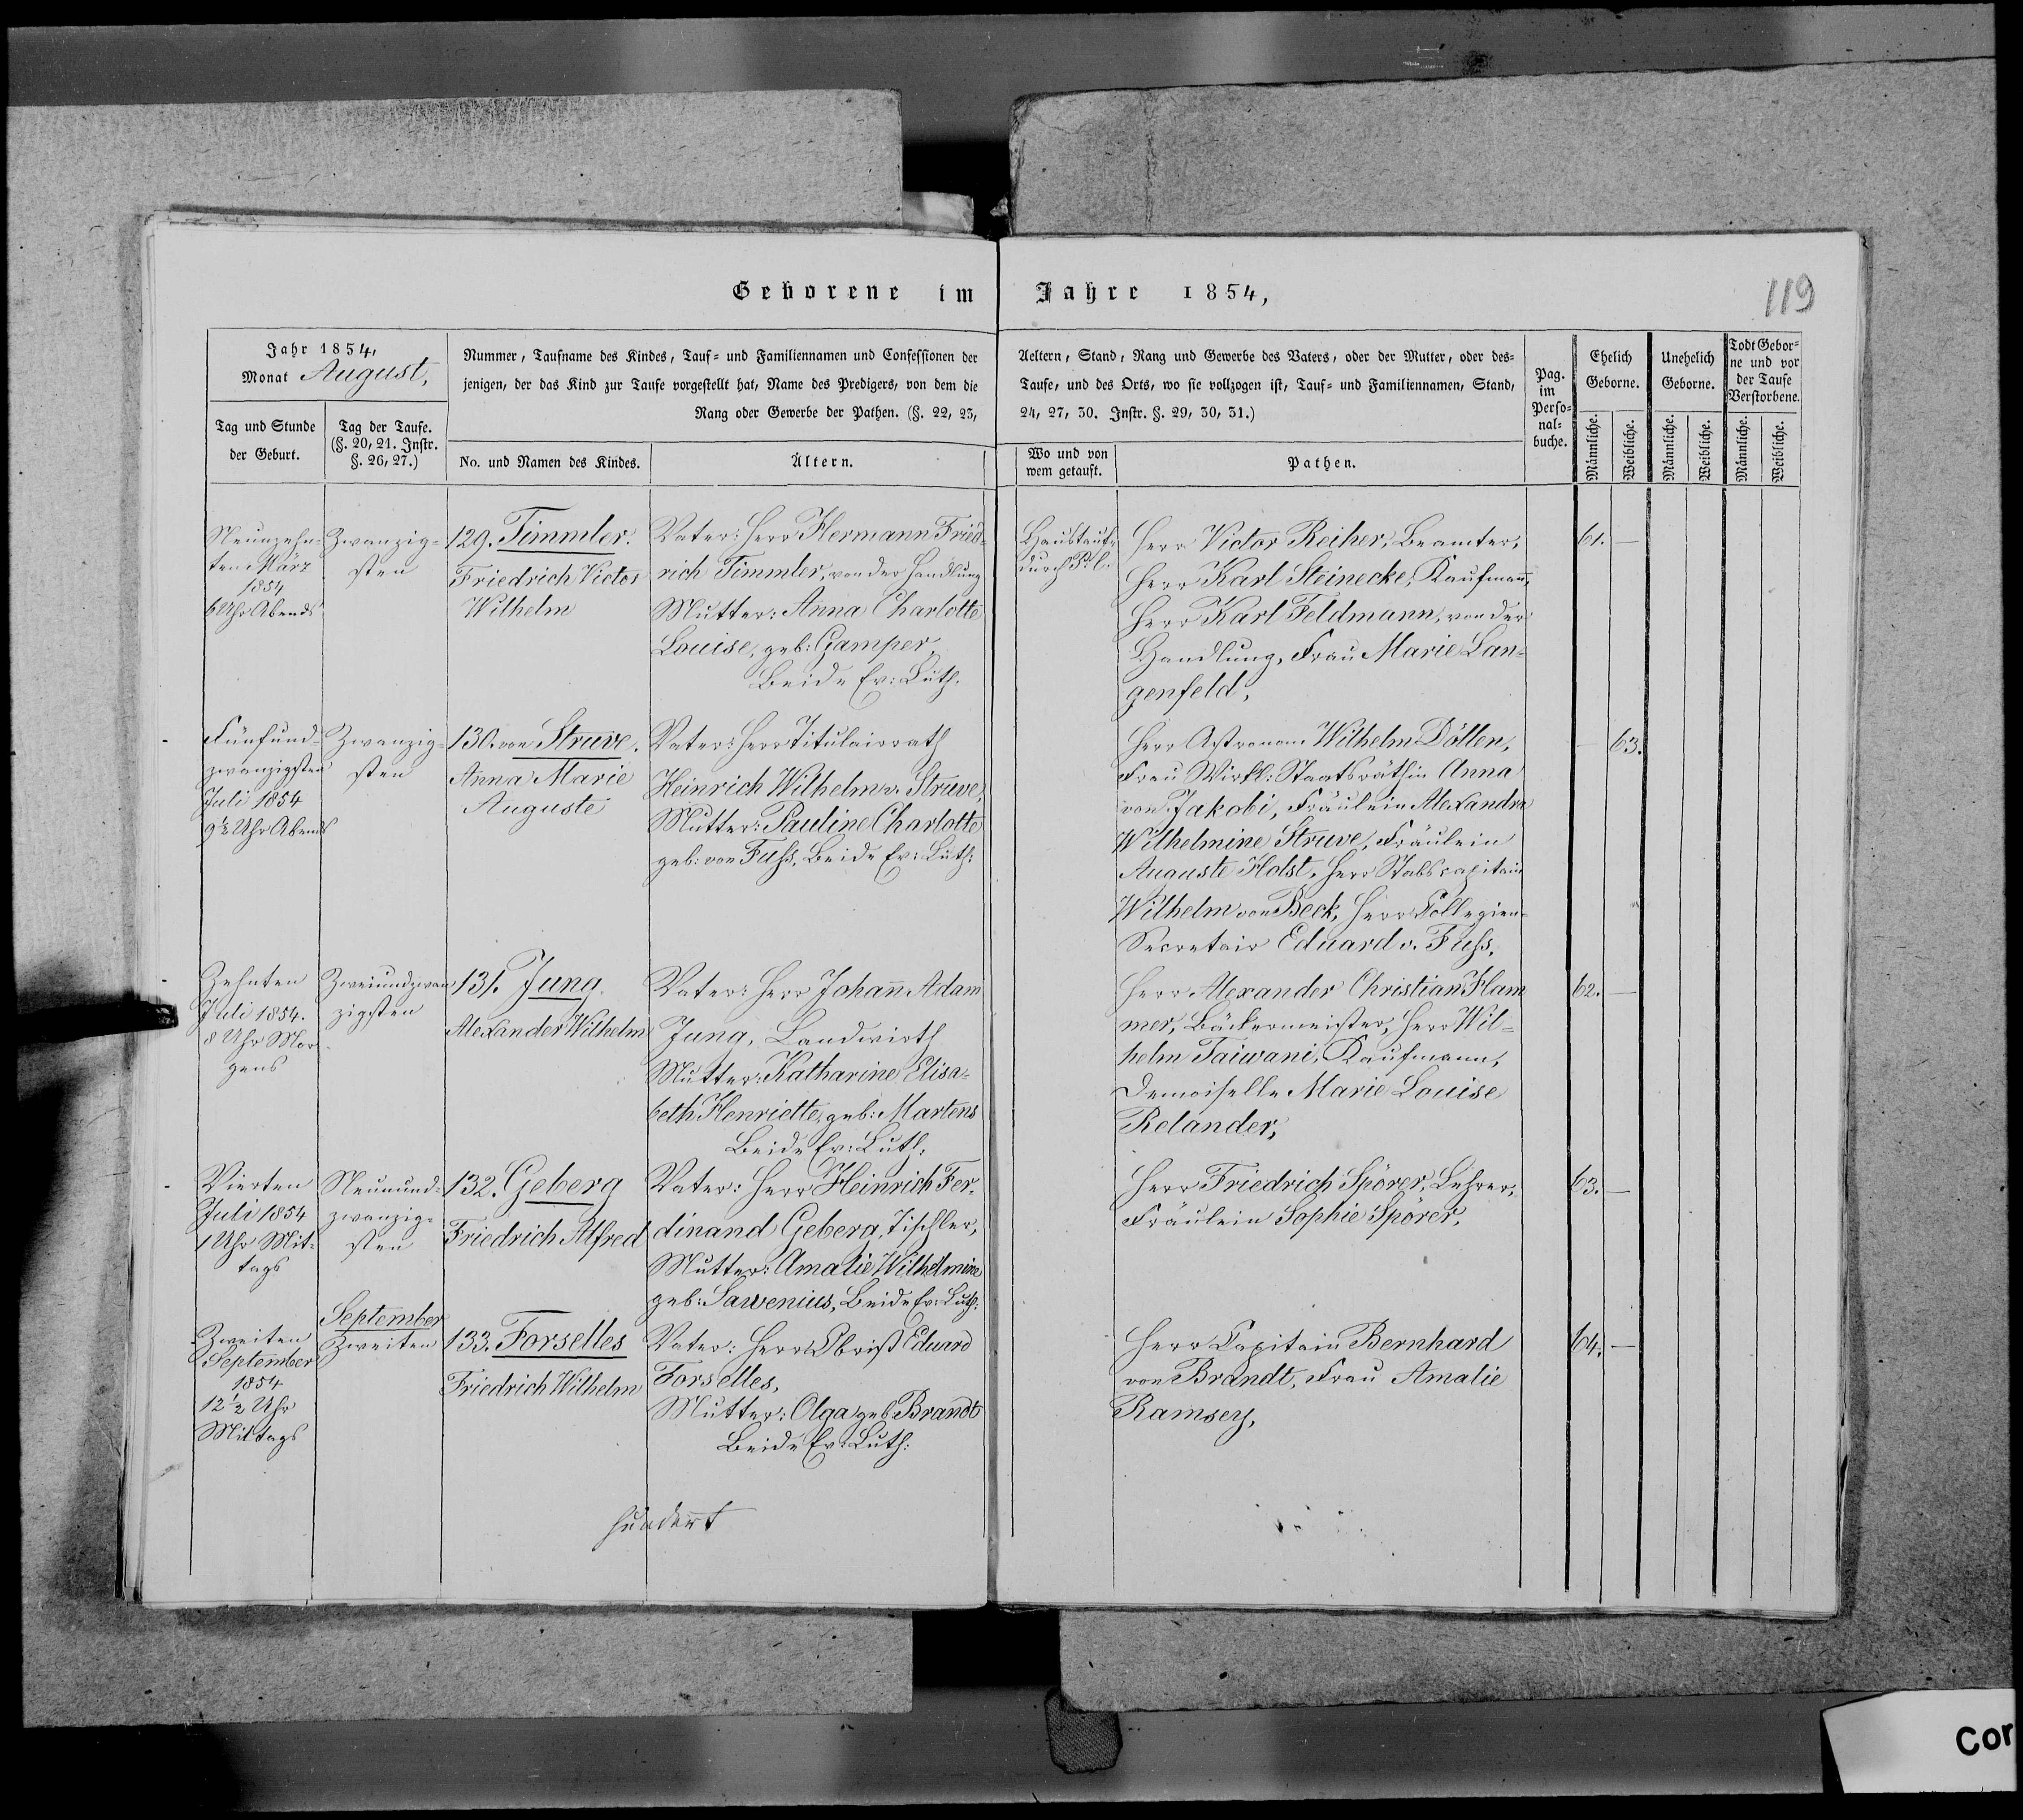 Geborene im Jahre 1854,
119
Jahr 1854,
Monat August,
Tag und Stunde
der Geburt.
Tag der Taufe.
(§. 20, 21. Instr.
§. 26, 27.)
Nummer, Taufname des Kindes, Tauf- und Familiennamen und Confessionen der
jenigen, der das Kind zur Taufe vorgestellt hat, Name des Predigers, von dem die
Rang oder Gewerbe der Pathen. (§. 22, 23,
No. und Namen des Kindes.
Ältern.
Aeltern, Stand, Rang und Gewerbe des Vaters, oder der Mutter, oder des-
Taufe, und des Orts, wo sie vollzogen ist, Tauf- und Familiennamen, Stand,
24, 27, 30. Instr. §. 29, 30, 31.)
Wo und von
wem getauft.
Pathen.
Pag.
im
Perso-
nal-
buche.
Ehelich
Geborne.
Unehelich
Geborne.
Todt Gebor-
ne und vor
der Taufe
Verstorbene.
Männliche.
Weibliche.
Männliche.
Weibliche.
Männliche.
Weibliche.
Neunzehn-
ten März
1854
6 Uhr Abends
Zwanzig-
sten
129. Timmler.
Friedrich Victor
Wilhelm
Vater: Herr Hermann Fried-
rich Timmler, von der Handlung
Mutter: Anna Charlotte
Louise, geb: Gamper,
Beide Ev: Luth.
Haustaufe
durch P. l.
Herr Victor Reiher, Beamter,
Herr Karl Steinecke, Kaufmann,
Herr Karl Feldmann, von der
Handlung, Frau Marie Lan-
genfeld,
61. —
Fünfund-
zwanzigsten
Juli 1854
9½ Uhr Abends
Zwanzig-
sten
130. von Struve.
Anna Marie
Auguste
Vater: Herr Titulairrath
Heinrich Wilhelm v. Struve,
Mutter: Pauline Charlotte
geb: von Fuss, Beide Ev: Luth:
Herr Astronom Wilhelm Döllen,
Frau Wirkl: Staatsräthin Anna
von Jakobi, Fräulein Alexandra
Wilhelmine Struve, Fräulein
Auguste Holst, Herr Stabscapitain
Wilhelm von Beck, Herr Collegien-
Secretair Eduard v. Fuss,
— 63.
Zehnten
Juli 1854.
8 Uhr Mor-
gens
Zweiundzwan
zigsten
131. Jung.
Alexander Wilhelm
Vater: Herr Johann Adam
Jung, Landwirth
Mutter: Katharine Elisa-
beth Henriette, geb: Martens
Beide Ev: Luth:
Herr Alexander Christian Ham
mer, Bäckermeister, Herr Wil-
helm Taiwani, Kaufmann,
Demoiselle Marie Louise
Relander,
62. —
Vierten
Juli 1854
1 Uhr Mit-
tags
Neunund-
zwanzig-
sten
132. Geberg
Friedrich Alfred
Vater: Herr Heinrich Fer-
dinand Geberg, Tischler,
Mutter: Amalie Wilhelmine
geb: Sawenius, Beide Ev: Luth:
Herr Friedrich Spörer, Lehrer,
Fräulein Sophie Spörer,
63. —
September
Zweiten
September
1854
12½ Uhr
Mittags
Zweiten
133. Forselles
Friedrich Wilhelm
Vater: Herr Obrist Eduard
Forselles,
Mutter: Olga geb Brandt
Beide Ev: Luth:
Herr Capitain Bernhard
von Brandt, Frau Amalie
Ramsey,
64. —
hundert
Cor